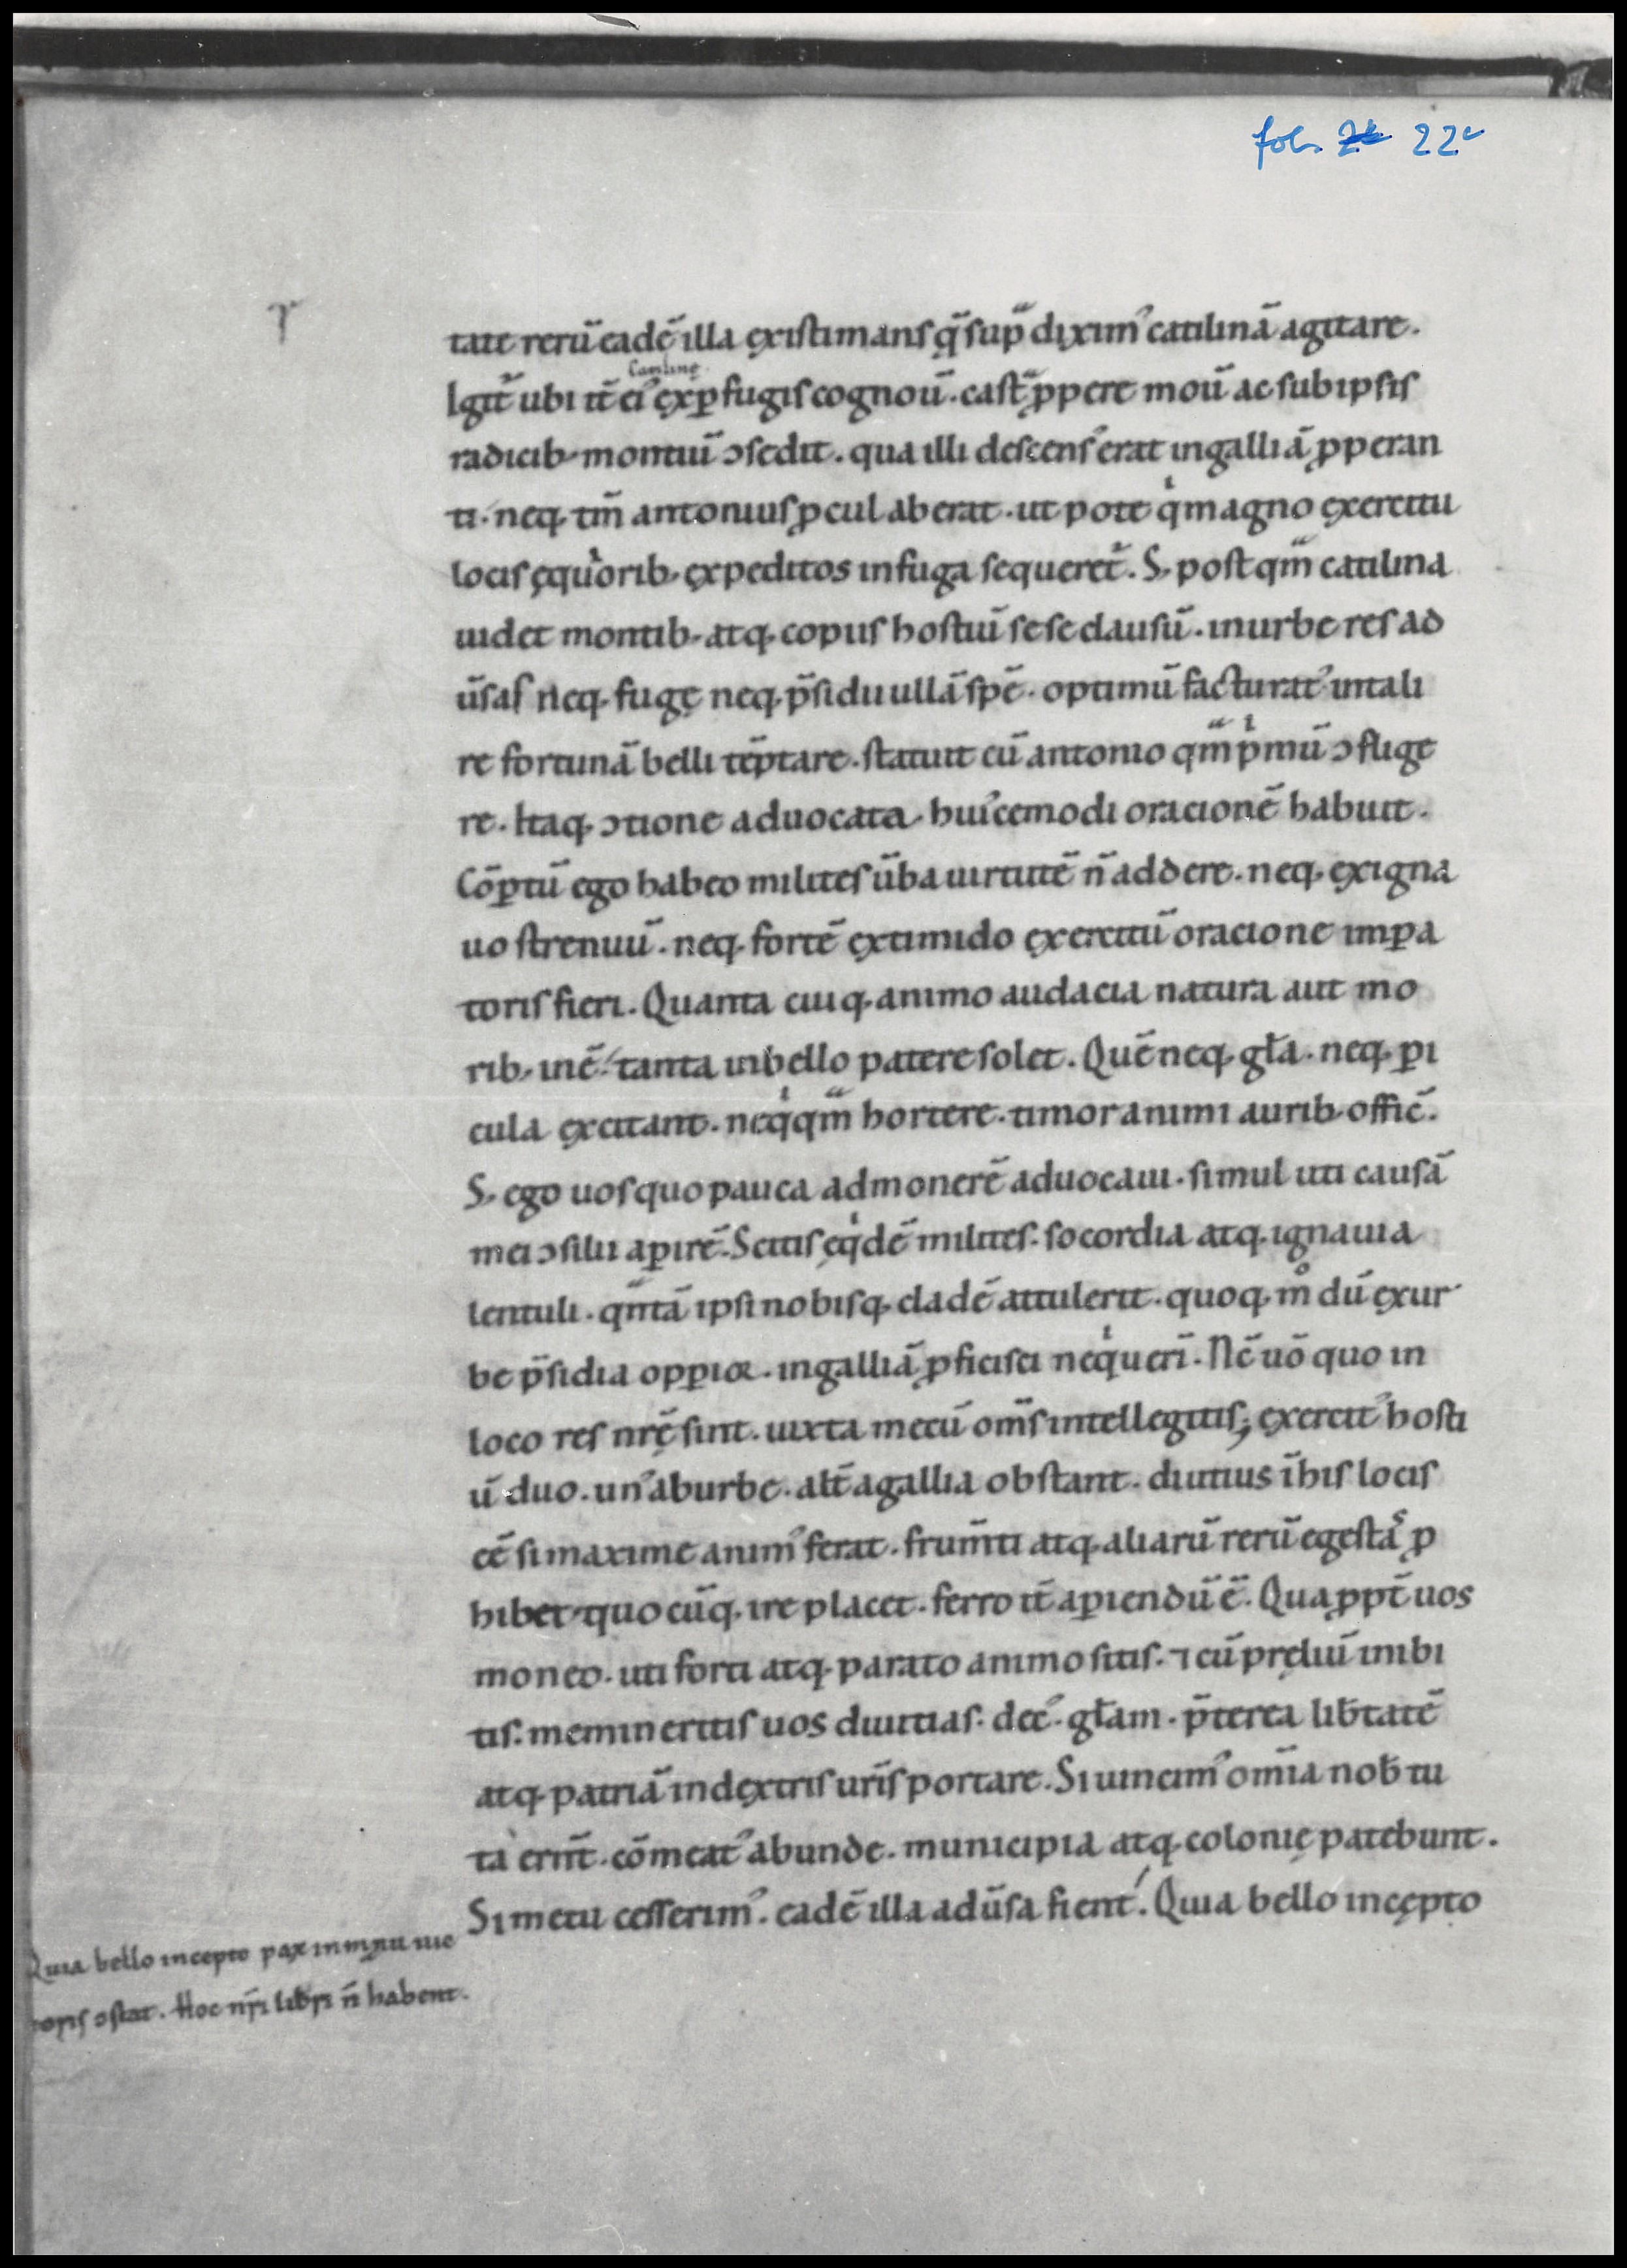 fol. 22v
tate rerū eadē illa ęxistimans q̄ sup̄ dixim᾽ catilinā agitare.
Catilinę
Igit̄ ubi it̄ ei᾽ ęx ꝑfugis cognou̅. cast̄ ꝓpere mou̅ ac sub ipsis
radicib; montiu̅ ↄsedit. qua illi descens᾽ erat in galliā ꝓperan
ti. neq; tm̄ antonius ꝓcul aberat. ut pote qͥ magno ęxercitu
locis ęquͥorib; ęxpeditos in fuga sequeret̄. S; postqm̄ catilina
uidet montib; atq; copiis hostiu̅ sese clausū. in urbe res ad
u̅sas neq; fugę neq; p̄sidii ullā spē. optimū factu rat᾽ in tali
re fortunā belli tēptare. statuit cū antonio qm̄ pͥmū ↄflige
re. Itaq; ↄtione aduocata. huicemodi oracionē habuit.
Cōꝑtū ego habeo milites u̅ba uirtutē n̄ addere. neq; ęx igna
uo strenuū. neq; fortē ęx timido ęxercitū oracione imꝑa
toris fieri. Quanta cuiq; animo audacia natura aut mo
rib; inē᾽. tanta in bello patere solet. Quē neq; gl̄a. neq; ꝑi
cula ęxcitant. neqͥqm̄ hortere. timor animi aurib; offic̄.
S; ego uos quo pauca admonerē aduocaui. simul uti causā
mei ↄsilii aꝑirē. Scitis ęqͥdē milites. socordia atq; ignauia
lentuli. qm̄tā ipsi nobisq; cladē attulerit. quoq; mͦ dū ęx ur
be p̄sidia opꝑior. in galliā ꝓficisci neqͥueri̅. Nc̄ uō quo in
loco res nr̄ę sint. iuxta mecū om̄s intellegitis; ęxercit᾽ hosti
ū duo. un᾽ ab urbe. alt̄ a gallia obstant. diutius ī his locis
eē si maxime anim᾽ ferat. frum̄ti atq; aliarū rerū egestaˢ ꝓ
hibet. quocūq; ire placet. ferro it̄ aꝑiendū ē. Quaꝓpt̄ uos
moneo. uti forti atq; parato animo sitis. ⁊ cū pręliū inibi
tis. memineritis uos diuitias. dec᾽. gl̄am. p̄terea lib̄tatē
atq; patriā in dęxtris ur̄is portare. Si uincim᾽ om̄ia nob̄ tu
ta ern̄t. cōmeat᾽ abunde. municipia atq; colonię patebunt.
Si metu cesserim᾽. eadē illa adu̅sa fient. Quia bello incępto
Quia bello incepto
ↄstat. Hoc nr̄i libri n̄ habent.